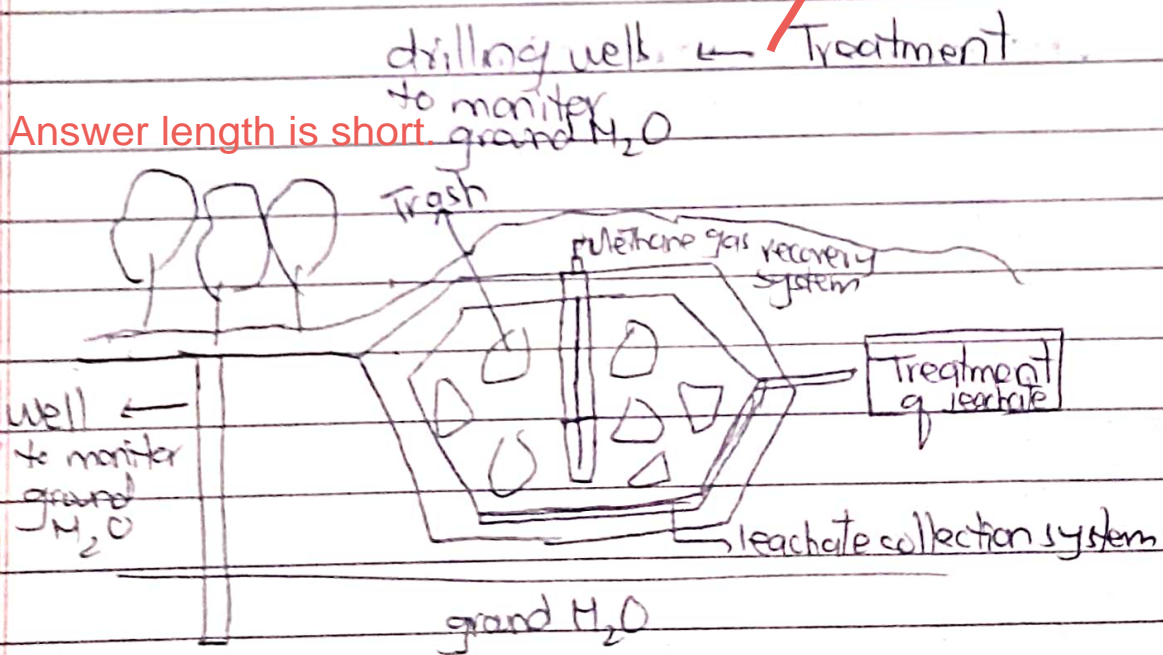 drilling well. ← Treatment
to moniter
grand H₂O
Answer length is short.
Trash
Methane gas recovery
system
Treatment
of leachate
well ←
to moniter
ground
H₂O
leachate collection system
grand H₂O